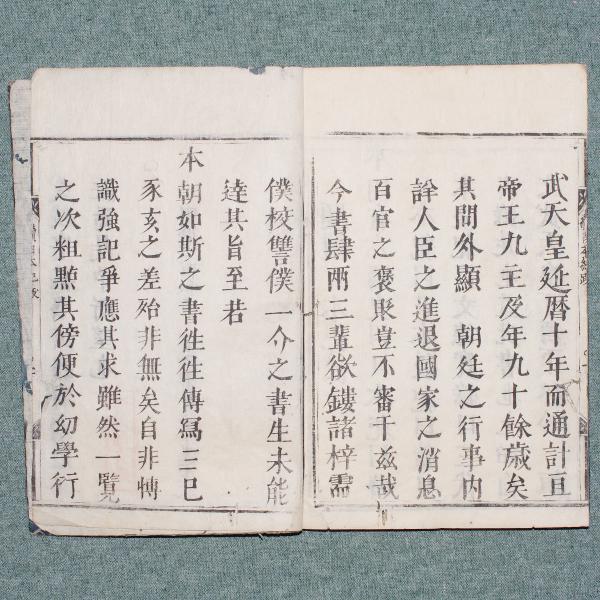 武天皇延曆十年而通計亘
帝王九主及年九十餘歲矣
其間外顯 朝廷之行事内
詳人臣之進退國家之消息
百官之褒貶豈不審于兹哉
今書肆兩三輩欲鏤諸梓需
僕校讐僕一介之書生未能
達其旨至若
本朝如斯之書徃徃傳寫三巳
豕亥之差殆非無矣自非愽
識強記爭應其求雖然一覽
之次粗㸃其傍便於幼學行